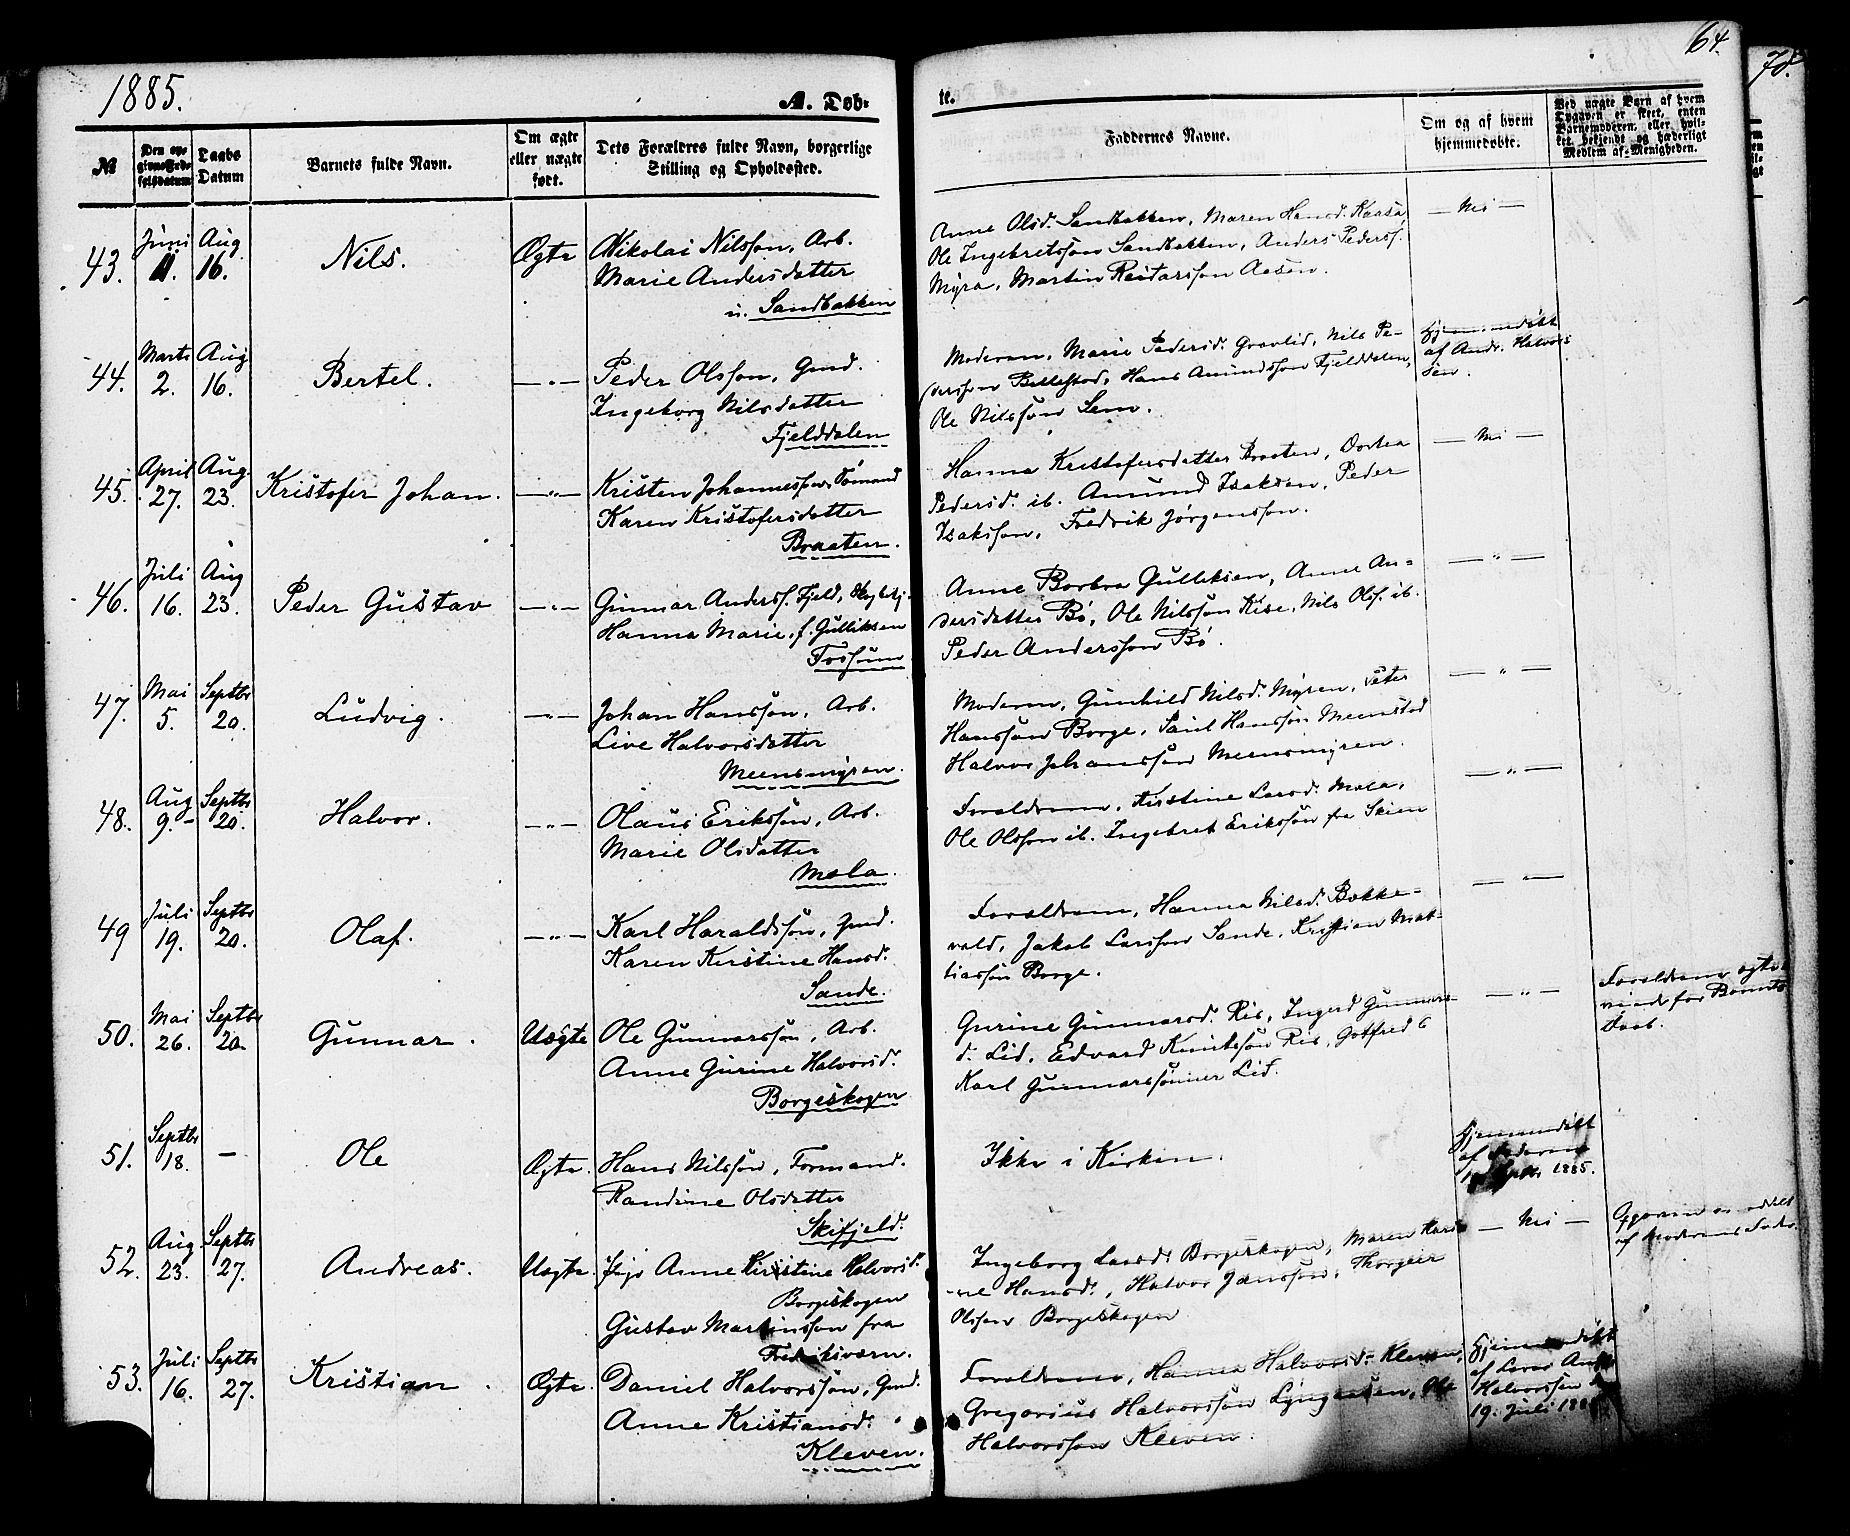 1885.
A. Døb-
te.
64.
78.
№
Den op-
givne Fød-
selsdatum
Daabs
Datum
Barnets fulde Navn.
Om ægte
eller uægte
født.
Dets Forældres fulde Navn, borgerlige
Stilling og Opholdssted.
Faddernes Navne.
Om og af hvem
hjemmedøbt.
Ved uægte Børn af hvem
Opgaven er skeet, enten
Barnemoderen, eller hvil-
ket bekjendt og hæderligt
Medlem af Menigheden.
43.
Juni
11.
Aug
16.
Nils.
Ægte
Nikolai Nilssøn, Arb.
Marie Andersdatter
u. Sandbakken
Anne Olsd. Sandbakken, Maren Hansd. Kaasa,
Ole Ingebretssøn Sandbakken, Anders Peders.
Myra, Martin Reitarssøn Aasen.
— Nei —
44.
Marts
2.
Aug
16.
Bertel.
— " —
Peder Olssøn, Gmd.
Ingeborg Nilsdatter
Fjelddalen
Moderen, Marie Pedersd. Gravlid, Nils Pe-
derssøn Bollestad, Hans Amundssøn Fjelddalen,
Ole Nilssøn Sem.
Hjemmedøbt
af Andr. Halvors
sen.
45.
April
27.
Aug.
23.
Kristofer Johan.
— " —
Kristen Johannessøn, Sømand
Karen Kristofersdatter
Braaten.
Hanna Kristofersdatter Braaten, Dortea
Pedersd. ib. Amund Isaksen, Peder
Isakssøn, Fredrik Jørgenssøn.
— Nei —
46.
Juli
16.
Aug
23.
Peder Gustav
— " —
Gunnar Anderss. Fjeld,
Hanna Marie, f. Gulliksen
Fossum.
Anne Borbra Gulliksen, Anne An-
dersdatter Bø, Ole Nilssøn Kise, Nils Ols. ib.
Peder Anderssøn Bø.
— " —
47.
Mai
5.
Septbr
20.
Ludvig.
— " —
Johan Hanssøn, Arb.
Live Halvorsdatter
Meensmyren.
Moderen, Gunhild Nilsd. Myren, Peter
Hanssøn Borge, Paul Hanssøn Meenstad
Halvor Johanssøn Meensmyren.
— " —
48.
Aug
9.
Septbr
20.
Halvor.
— " —
Olaus Erikssøn, Arb.
Marie Olsdatter
Mæla.
Forældrene, Kirstine Larsd. Mæla,
Ole Olssøn ib. Ingebret Erikssøn fra Skien
— " —
49
Juli
19.
Septbr
20.
Olaf.
— " —
Karl Haraldssøn, Gmd.
Karen Kirstine Hansd.
Sande.
Forældrene, Hanna Nilsd. Bakke-
vald, Jakob Larssøn Sande, Kristian Mat-
tiassøn Borge.
— " —
50.
Mai
26.
Septbr
20.
Gunnar.
Uægte
Ole Gunnarssøn, Arb.
Anne Gurine Halvorsd.
Borgeskogen
Gurine Gunnarsd. Ris, Ingerd Gunnars-
d. Lid, Edvard Knutssøn Ris, Gotfred &
Karl Gunnarssønner Lid.
— " —
Forældrene ægte
viede før Barnets
Daab.
51.
Septbr
18.
—
Ole
Ægte.
Hans Nilssøn, Formand.
Randine Olsdatter
Skifjeld.
Ikke i Kirken.
Hjemmedøbt
af
1885.
52.
Aug.
23.
Septbr
27.
Andreas.
Uægte.
Pige Anne Kirstine Halvorsd.
Borgeskogen
Gustav Martinssøn fra
Fredriksværn.
Ingeborg Larsd. Borgeskogen, Maren Kari-
ne Hansd., Halvor Janssøn, Thorgeir
Olssøn Borgeskogen
— Nei —
Opgaven meddelt
af Moderens Fader.
53.
Juli
16.
Septbr
27.
Kristian.
Ægte.
Daniel Halvorssøn, Gmd.
Anne Kristiansd.
Kleven.
Forældrene, Hanna Halvorsd. Kleven,
Gregorius Halvorssøn Lyngaasen, Ole
Halvorssøn Kleven.
Hjemmedøbt
af Lærer
Halvorssen
19. Juli 188